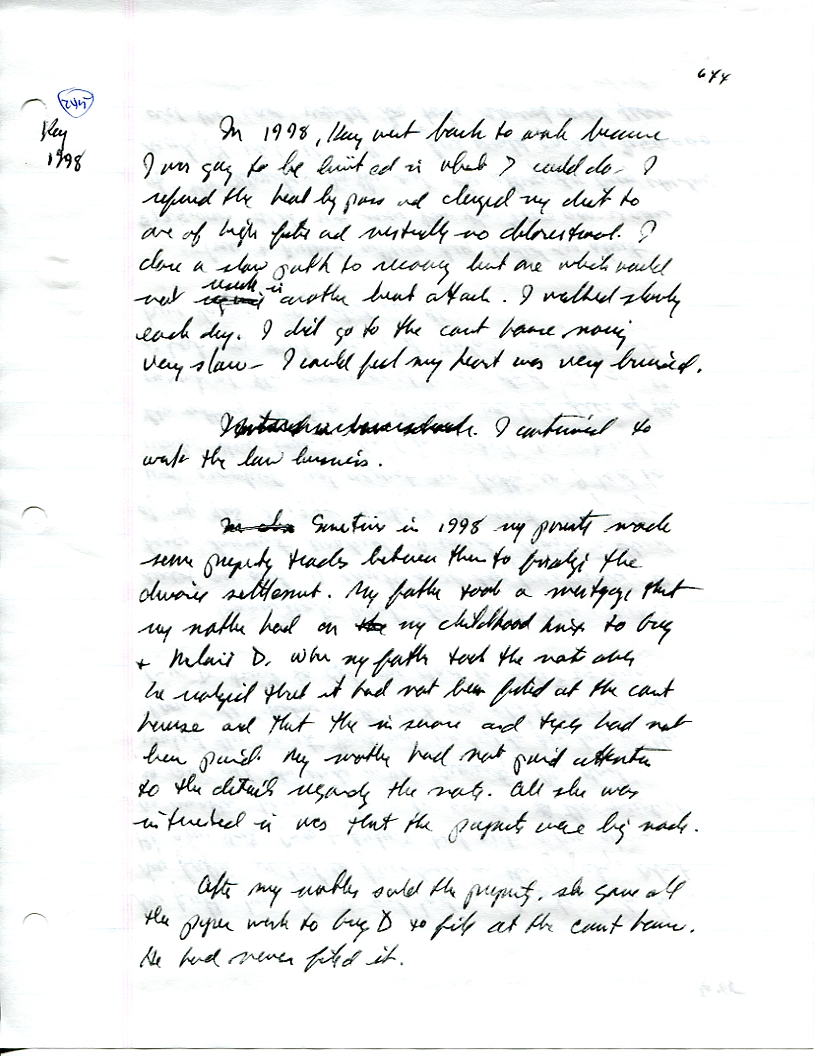 644
245
Kay
1998
In 1998, Kay went back to work because
I was going to be limited in what I could do. I
refused the heart by pass and changed my diet to
one of high fiber and virtually no cholesterol. I
chose a slow path to recovery but one which would
not result in another heart attack. I walked slowly
each day. I did go to the court house moving
very slow - I could feel my heart was very bruised.
I continued to
work the law business.
Sometime in 1998 my parents made
some property trades between them to finalize the
divorce settlement. My father took a mortgage that
my mother had on the my childhood home to Greg
+ D. When my father took the note over
he realized that it had not been filed at the court
house and that the insurance and taxes had not
been paid. My mother had not paid attention
to the details regarding the note. All she was
interested in was that the payments were being made.
After my mother sold the property, she gave all
the paper work to Greg D to file at the court house.
He had never filed it.